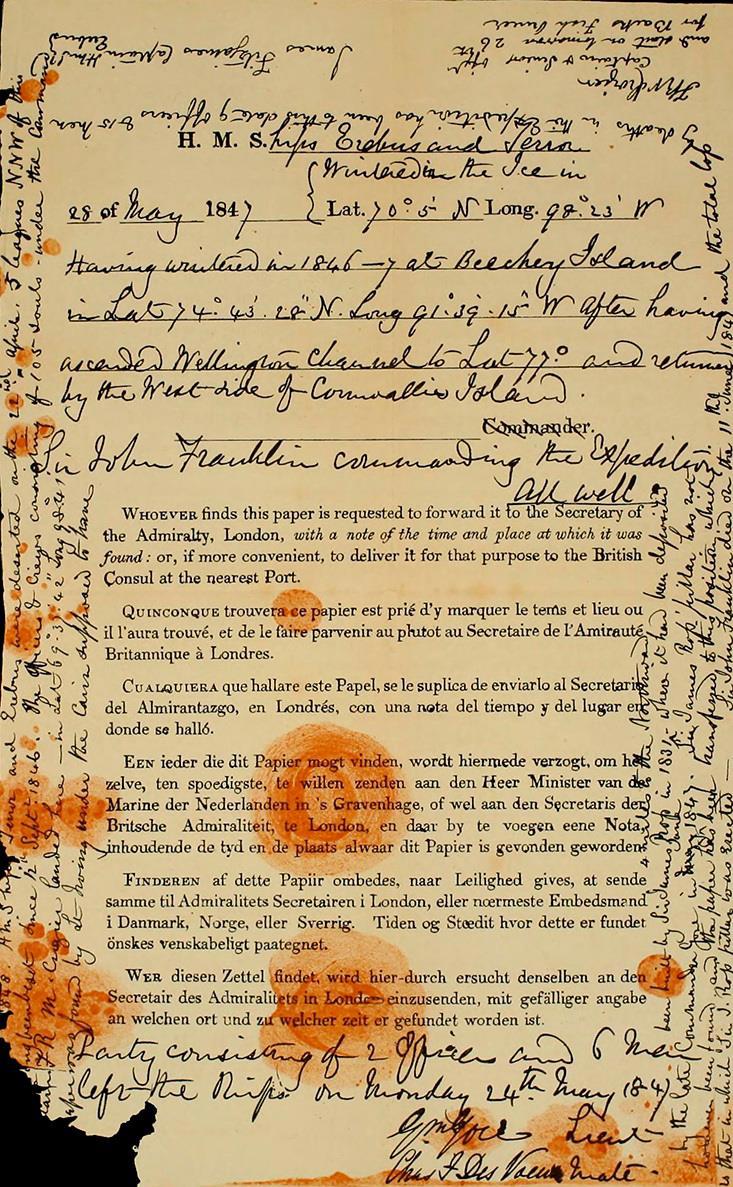 H. M. S. hips Erebus and Terror
Wintered in the Ice in
28 of May 1847 Lat. 70° 5' N Long. 98° 23' W
Having wintered in 1846-7 at Beechey Island
in Lat 74° 43' 28" N. Long 91° 39' 15" W After having
ascended Wellington Channel to Lat 77° and returned
by the West side of Cornwallis Island.
Commander.
Sir John Franklin commanding the Expedition
All well
WHOEVER finds this paper is requested to forward it to the Secretary of
the Admiralty, London, with a note of the time and place at which it was
found: or, if more convenient, to deliver it for that purpose to the British
Consul at the nearest Port.
QUINCONQUE trouvera ce papier est prié d'y marquer le tems et lieu ou
il l'aura trouvé, et de le faire parvenir au plutot au Secretaire de l'Amirauté
Britannique à Londres.
CUALQUIERA que hallare este Papel, se le suplica de enviarlo al Secretario
del Almirantazgo, en Londrés, con una nota del tiempo y del lugar en
donde se halló.
EEN ieder die dit Papier mogt vinden, wordt hiermede verzogt, om het
zelve, ten spoedigste, te willen zenden aan den Heer Minister van de
Marine der Nederlanden in 's Gravenhage, of wel aan den Secretaris den
Britsche Admiraliteit, te London, en daar by te voegen eene Nota,
inhoudende de tyd en de plaats alwaar dit Papier is gevonden geworden
FINDEREN af dette Papiir ombedes, naar Leilighed gives, at sende
samme til Admiralitets Secretairen i London, eller nœrmeste Embedsmand
i Danmark, Norge, eller Sverrig. Tiden og Stœdit hvor dette er fundet
önskes venskabeligt paategnet.
WER diesen Zettel findet, wird hier-durch ersucht denselben an den
Secretair des Admiralitets in London einzusenden, mit gefälliger angabe
an welchen ort und zu welcher zeit er gefundet worden ist.
Party consisting of 2 Officers and 6 Men
left the Ships on Monday 24th May 1847
Gm Gore Lieut
Chas F Des Voeux Mate
1848 H M Ships Terror and Erebus were deserted on the 22nd April, 5 leagues NNW of this
having been beset since 12th Sept. 1846. The Officers & Crews consisting of 105 souls under the command
F. R. M. Crozier landed here - in Lat 69° 37' 42" Long 98° 41'
paper was found by Lt Irving under the Cairn supposed to have
been built by Sir James Ross in 1831 - where it had been deposited
4 miles to the Northward
by the late Commander Gore in June 1847. Sir James Ross' pillar has not
however been found and the paper has been transferred to this position which
is that in which Sir J. Ross' pillar was erected - Sir John Franklin died on the 11th June 1847 and the total loss
by deaths in the Expedition has been to this date 9 Officers & 15 Men
James Fitzjames Captain H M S Erebus
F R M Crozier
Captain & Senior Offr
and start on tomorrow 26th
for Backs Fish River